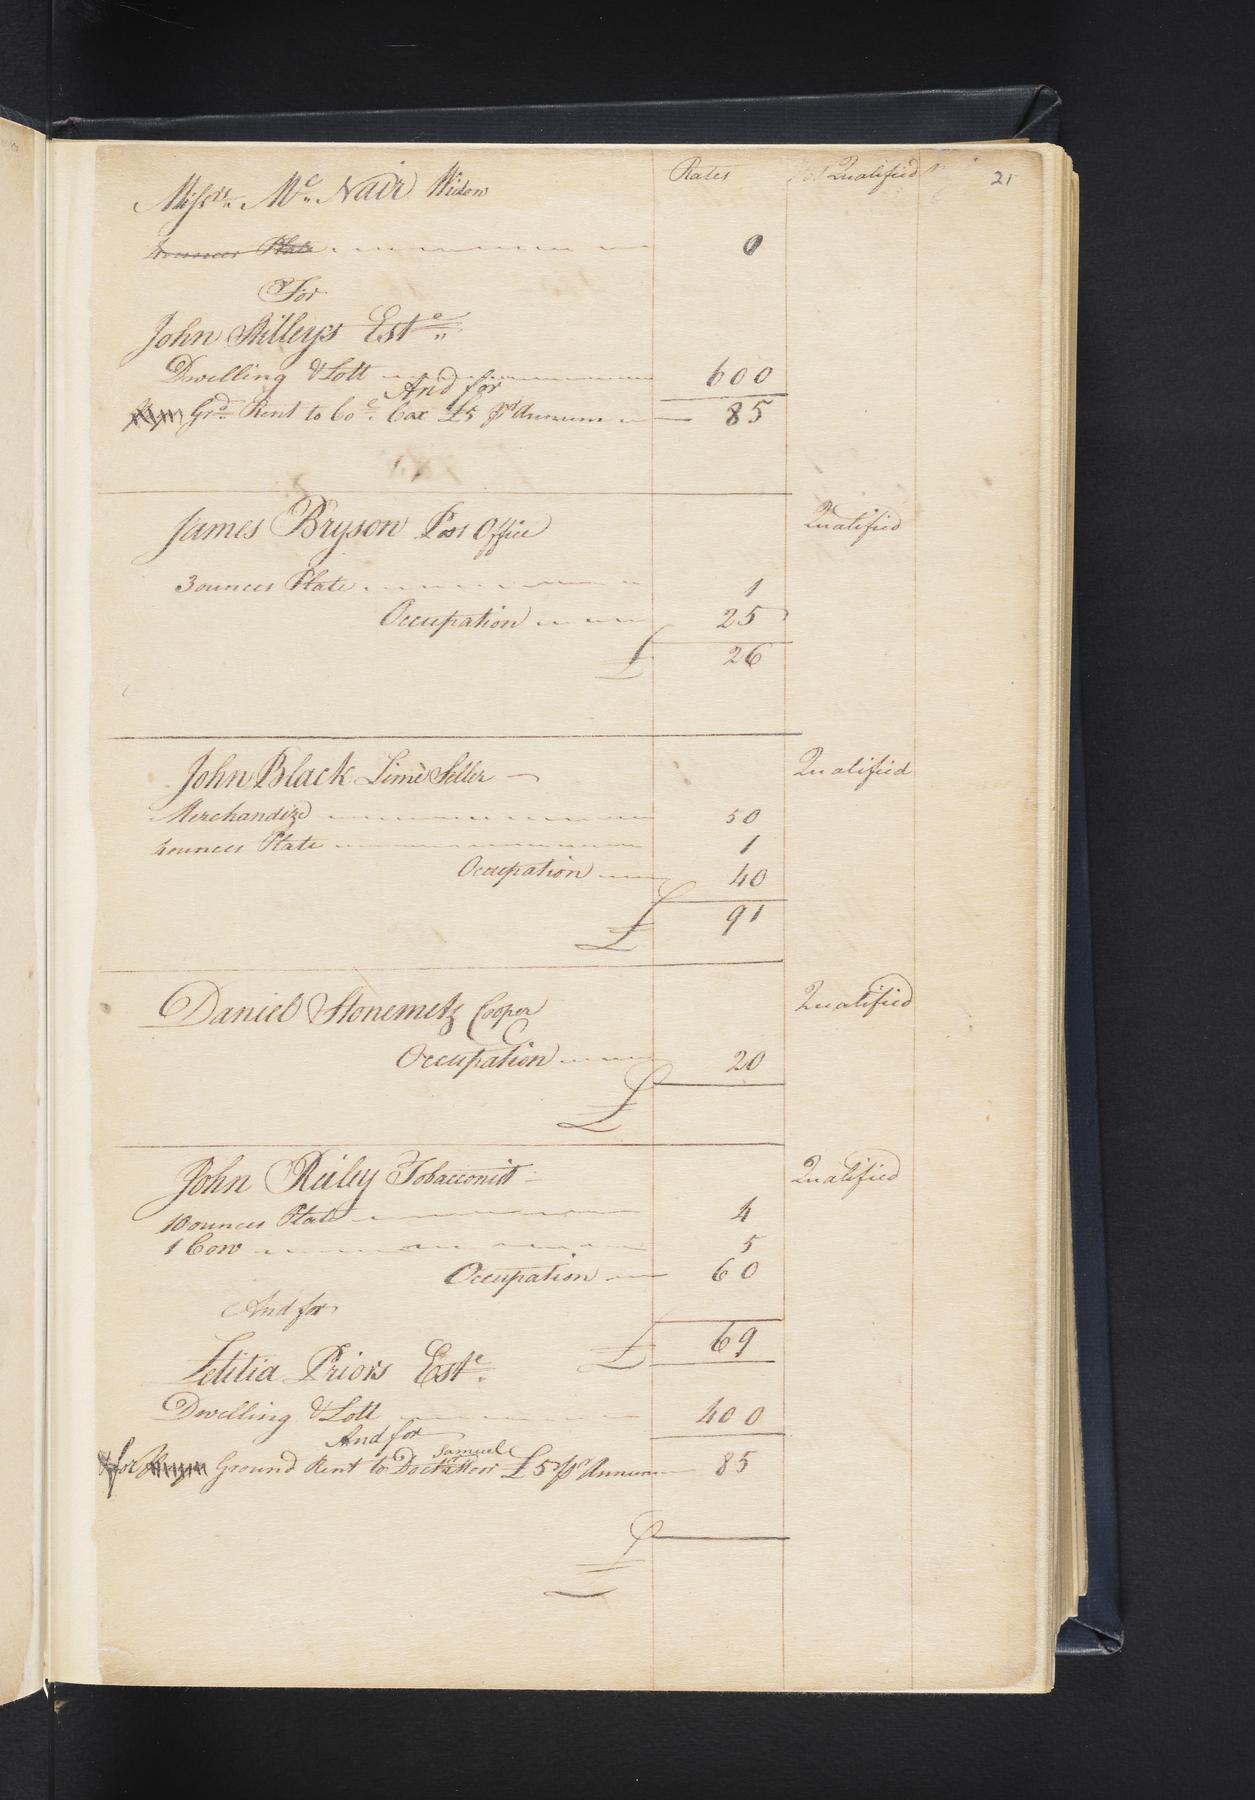 Rates Qualified 21
Miss.rs Mc Nair Widow
ounces Plate 0
For
John Stilleys Est.e
Dwelling & Lott 600
And for
Gr.d Rent to Co.l Cox £5 Pr Annum 85
James Bryson Post Office Qualified
3 ounces Plate 1
Occupation 25
£ 26
John Black Lime Seller Qualified
Merchandize 50
4 ounces Plate 1
Occupation 40
£ 91
Daniel Stonemetz Cooper Qualified
Occupation 20
£
John Reiley Tobacconist Qualified
10 ounces Plate 4
1 Cow 5
Occupation 60
And for
£ 69
Letitia Priors Est.e
Dwelling & Lott 400
And for
Samuel
& for Ground Rent to Doct.r Moor £5 Pr Annum 85
£